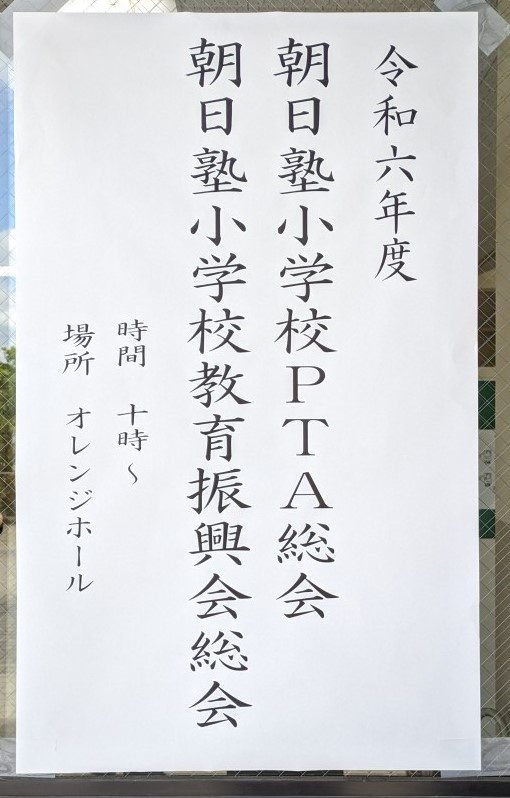 令和六年度
朝日塾小学校PTA総会
朝日塾小学校教育振興会総会
時間　十時～
場所　オレンジホール